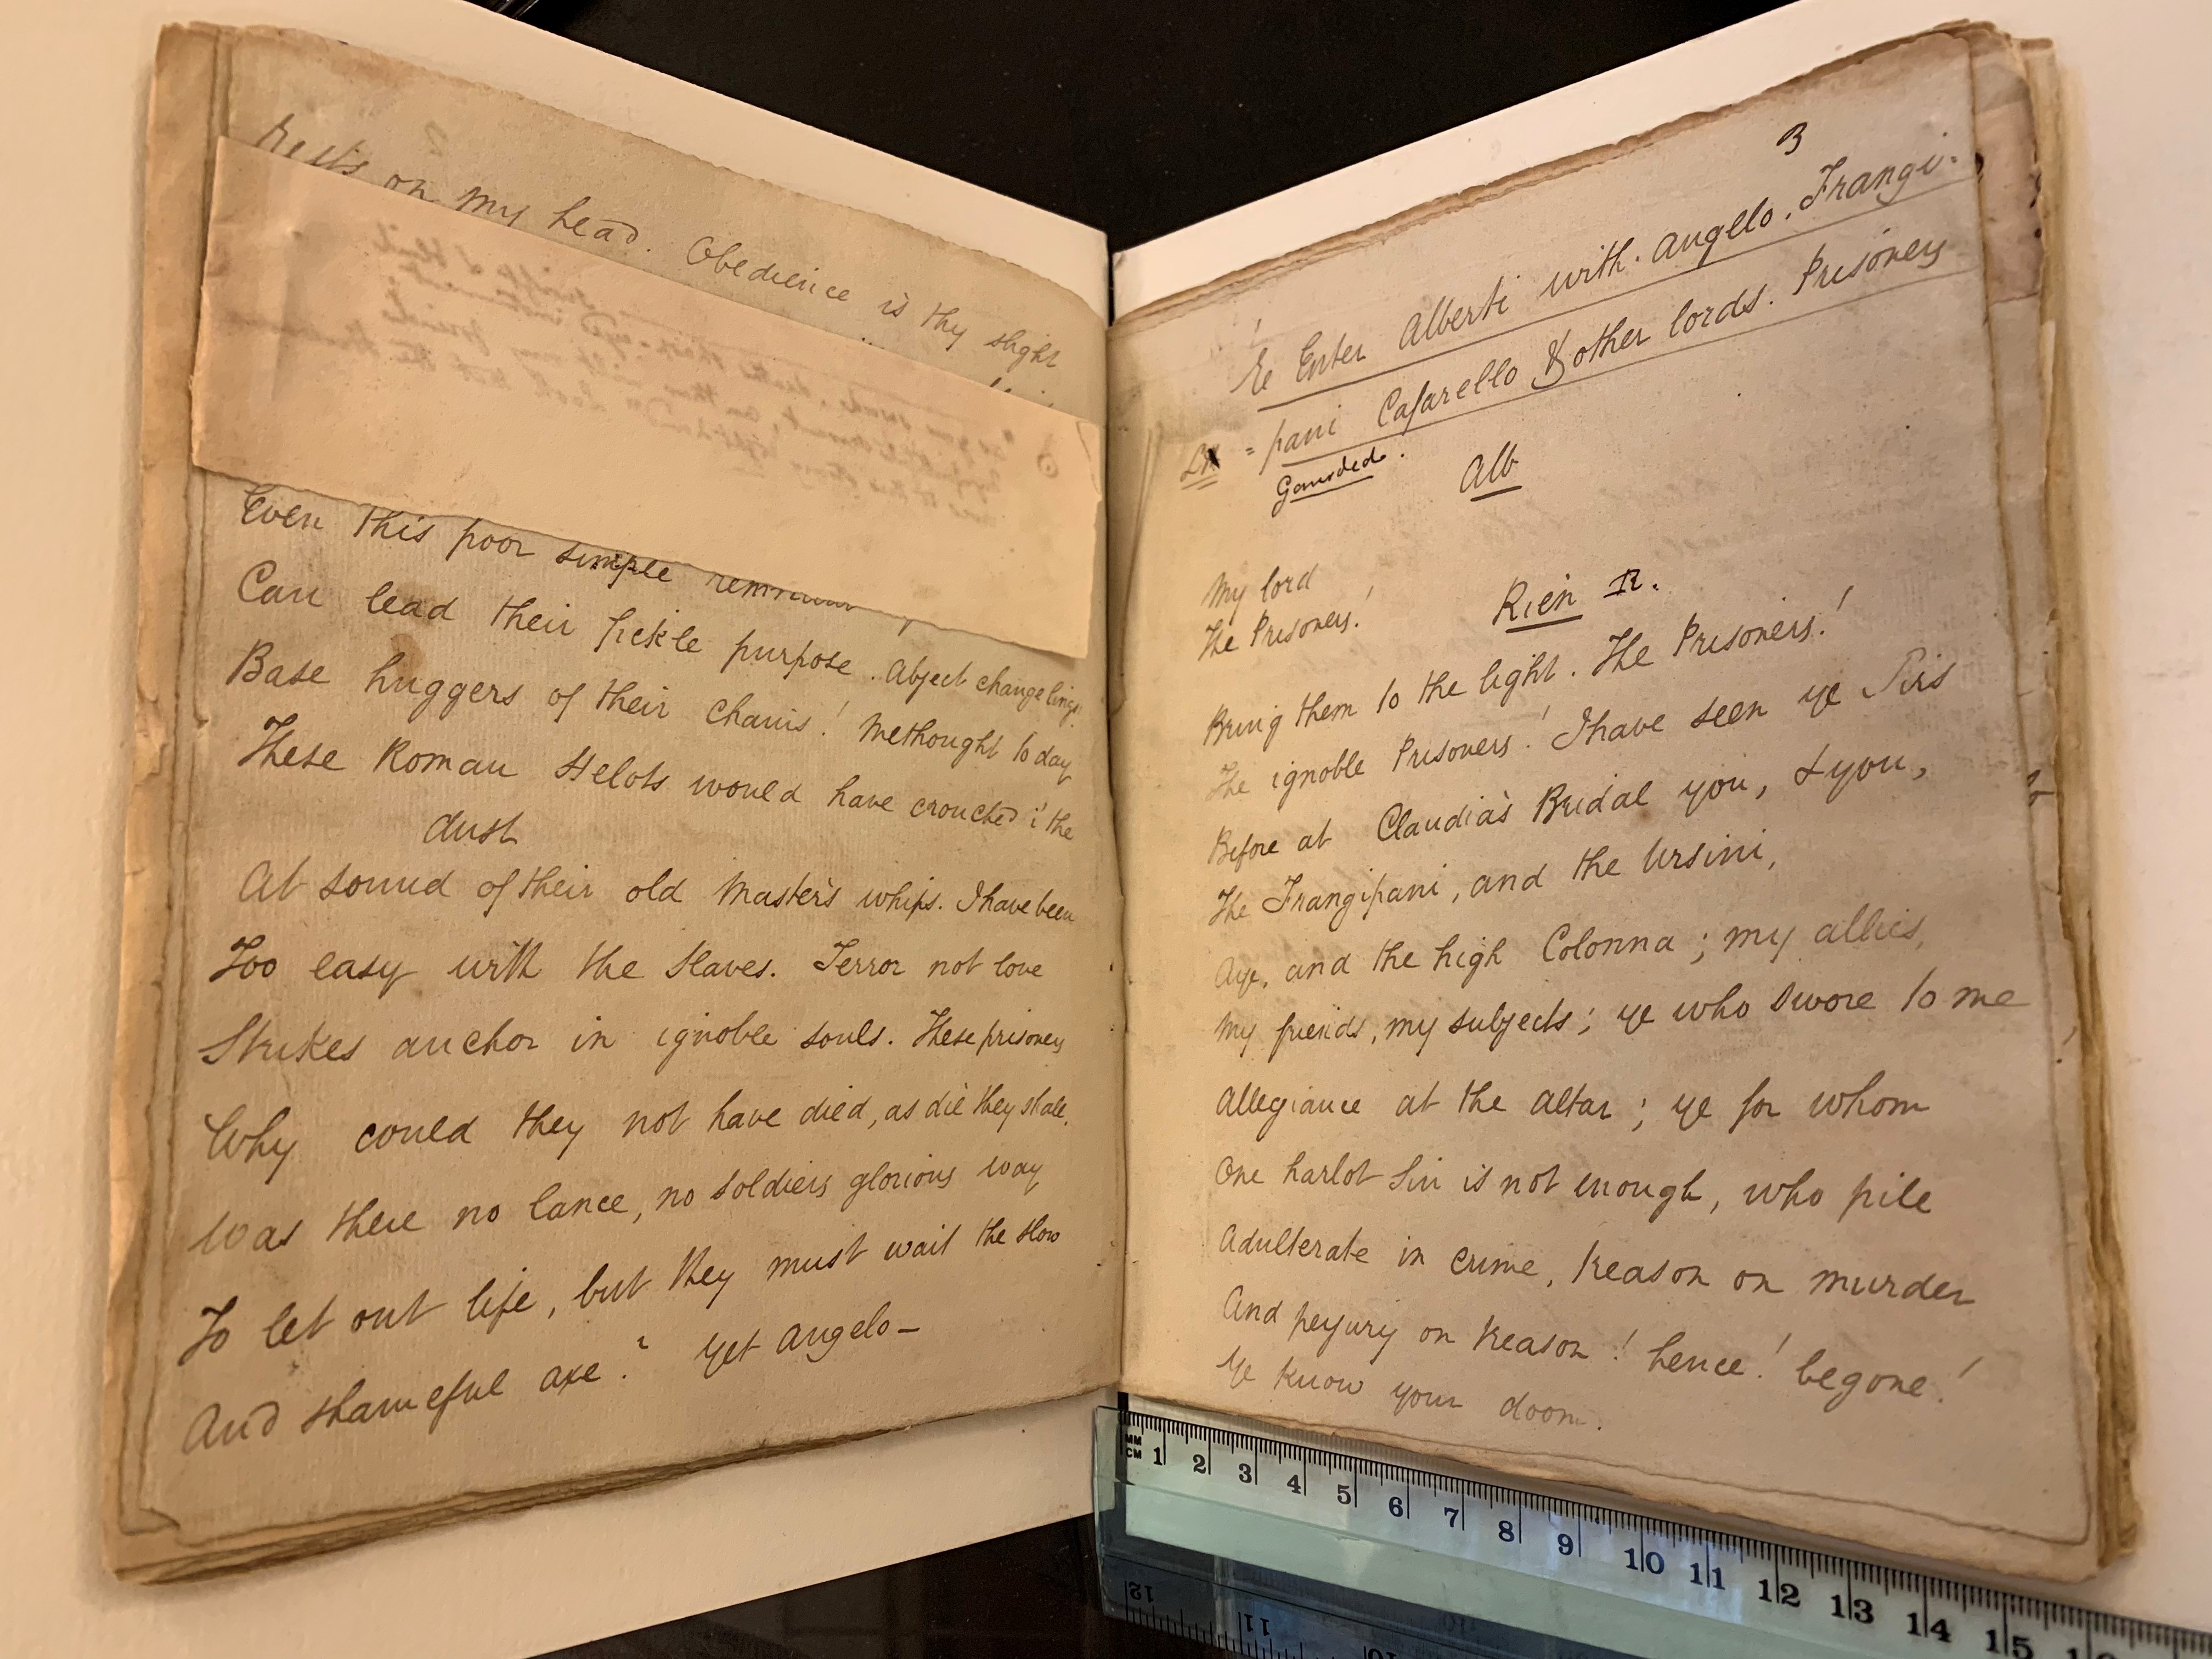 Rests on my head. Obedience is thy slight
Even this poor simple
Can lead their fickle purpose. Abject changelings!
Base huggers of their chains! Methought to day
These Roman Helots would have crouched i' the
dust
At sound of their old Master's whips. I have been
Too easy with the Slaves. Terror not love
Strikes anchor in ignoble souls. These prisoners
Why could they not have died, as die they shall.
Was there no lance, no soldiers glorious way
To let out life, but they must wait the slow
And shameful axe? Yet Angelo—
3
Enter Alberti with Angelo. Frangi-
=pani Cafarello & other lords. Prisoners
Gaurded.
Alb
My lord
The Prisoners!
Rien R.
Bring them to the light. The Prisoners!
The ignoble Prisoners! I have seen ye Sirs
Before at Claudia's Bridal you, & you,
The Frangipani, and the Ursini,
Aye, and the high Colonna; my allies,
My friends, my subjects; ye who swore to me
Allegiance at the altar; ye for whom
One harlot Sin is not enough, who pile
Adulterate in crime, treason on murder
And perjury on treason! hence! begone!
Ye know your doom.
MM
CM 1 2 3 4 5 6 7 8 9 10 11 12 13 14 15
12 11 10